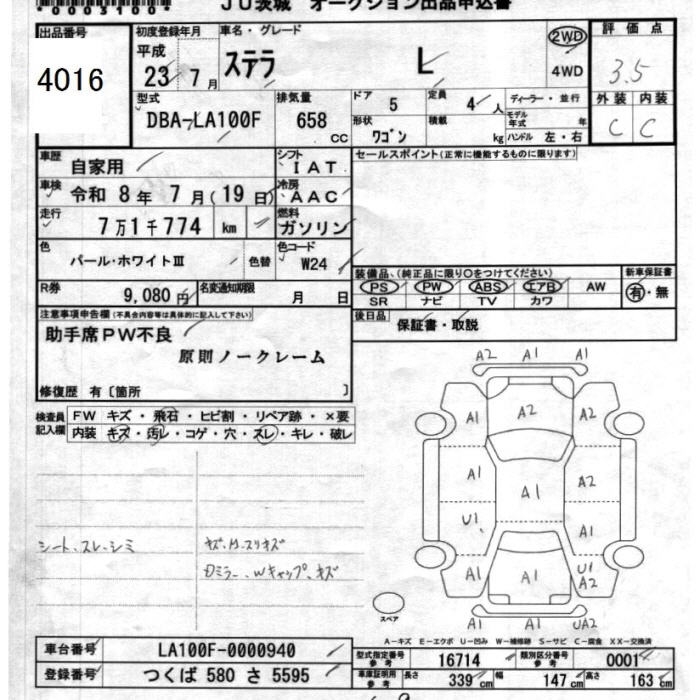 *00003100*
JU茨城 オークション出品申込書
出品番号 4016
初度登録年月 平成 23年 7月
車名・グレード ステラ L
2WD 4WD
評価点 3.5
外装 内装
C C
型式 DBA-LA100F
排気量 658 CC
ドア 5
定員 4人
形状 ワゴン
積載 kg
ディーラー・並行
モデル年式 年
ハンドル 左・右
車歴 自家用
シフト IAT
セールスポイント(正常に機能するものに限ります)
車検 令和 8年 7月(19日)
冷房 AAC
走行 7万1千774 km
燃料 ガソリン
色 パール・ホワイトⅢ 色替
色コード W24
装備品、(純正品に限り○をつけてください)
新車保証書
PS PW ABS エアB AW 有・無
SR ナビ TV カワ
R券 9,080円
名変通知期限 月 日
後日品 保証書・取説
注意事項申告欄(不具合内容等は具体的に記入して下さい)
助手席PW不良
原則ノークレーム
修復歴 有〔箇所 〕
検査員記入欄
FW キズ・飛石・ヒビ割・リペア跡・×要
内装 キズ・汚レ・コゲ・穴・スレ・キレ・破レ
シート、スレ、シミ
A2 A1 A1
A1 A2 A2
A1 A1 A2
U1 A1
A1 A1 U1 A2
A1 A1 UA2
スペア
A-キズ E-エクボ U-凹み W-補修跡 S-サビ C-腐食 XX-交換済
車台番号 LA100F-0000940
型式指定番号 参考 16714
類別区分番号 参考 0001
登録番号 つくば 580 さ 5595
車庫証明用 参考 長さ 339cm 幅 147cm 高さ 163cm